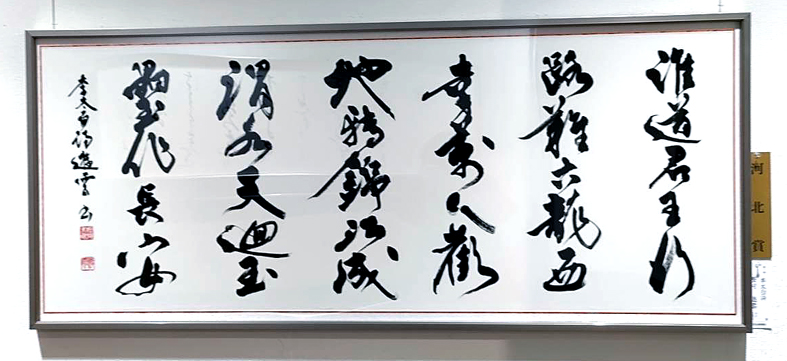 誰道君王行
路難六龍西
幸萬人歡
地轉錦江成
渭水天迴玉
壘作長安
李太白詩
河北賞